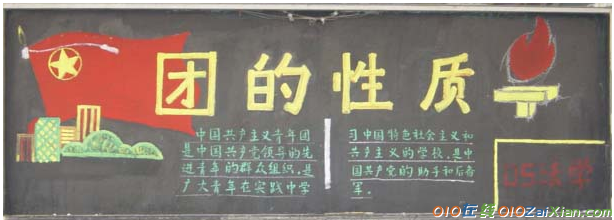 团的性质
中国共产主义青年团
是中国共产党领导的先
进青年的群众组织,是
广大青年在实践中学
习中国特色社会主义和
共产主义的学校,是中
国共产党的助手和后备
军.
05法学
010在线 010ZaiXian.com